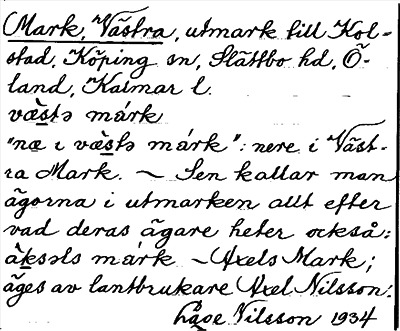 Mark, Västra, utmark till Kol-
stad, Köping sn, Slättbo hd, Ö-
land, Kalmar l.
væ̀stə márk
"næ ı væ̀stə márk": nere i Väst-
ra Mark. ~ Sen kallar man
ägorna i utmarken allt efter
vad deras ägare heter också:
àksəls márk ~ Axels Mark;
äges av lantbrukare Axel Nilsson.
Låge Nilsson 1934